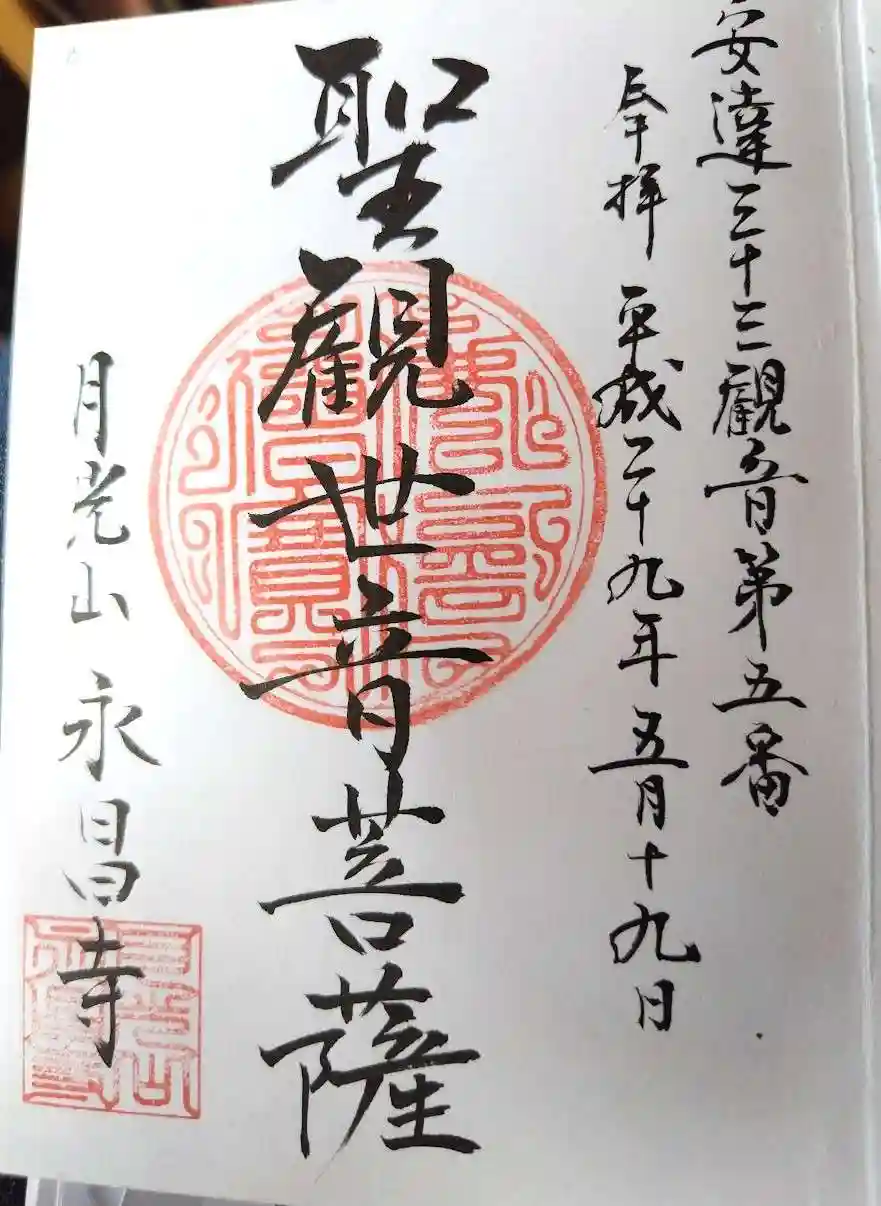 安達三十三観音第五番
奉拝 平成二十九年五月十九日
聖觀世音菩薩
月光山 永昌寺